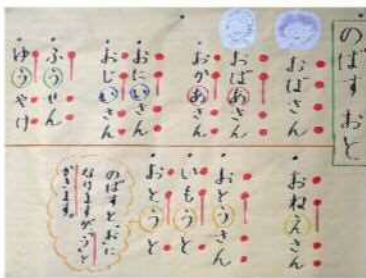 のばすおと
おばさん
おばあさん
おかあさん
おにいさん
おじいさん
ふうせん
ゆうやけ
おねえさん
おとうさん
いもうと
おとうと
のばすとおに
なりますが、うと
かきます。